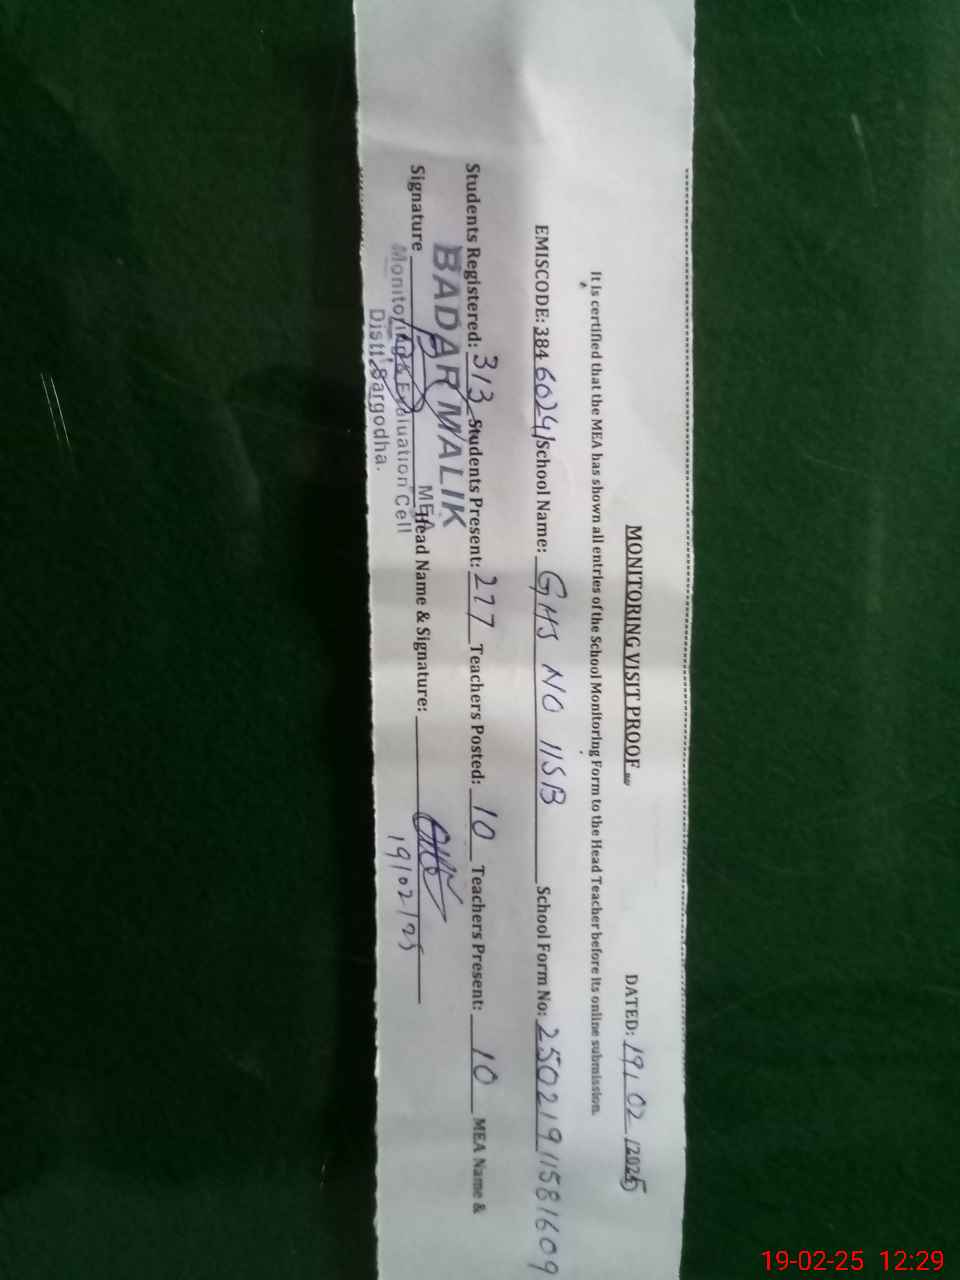 MONITORING VISIT PROOF DATED: 19/02/2025
It is certified that the MEA has shown all entries of the School Monitoring Form to the Head Teacher before its online submission.
EMISCODE: 38460241 School Name: GHS NO 11SB School Form No: 25021911581609
Students Registered: 313 Students Present: 277 Teachers Posted: 10 Teachers Present: 10 MEA Name &
Signature Head Name & Signature:
BADAR MALIK
MEA
Monitoring & Evaluation Cell
Distt: Sargodha.
19/02/25
19-02-25 12:29